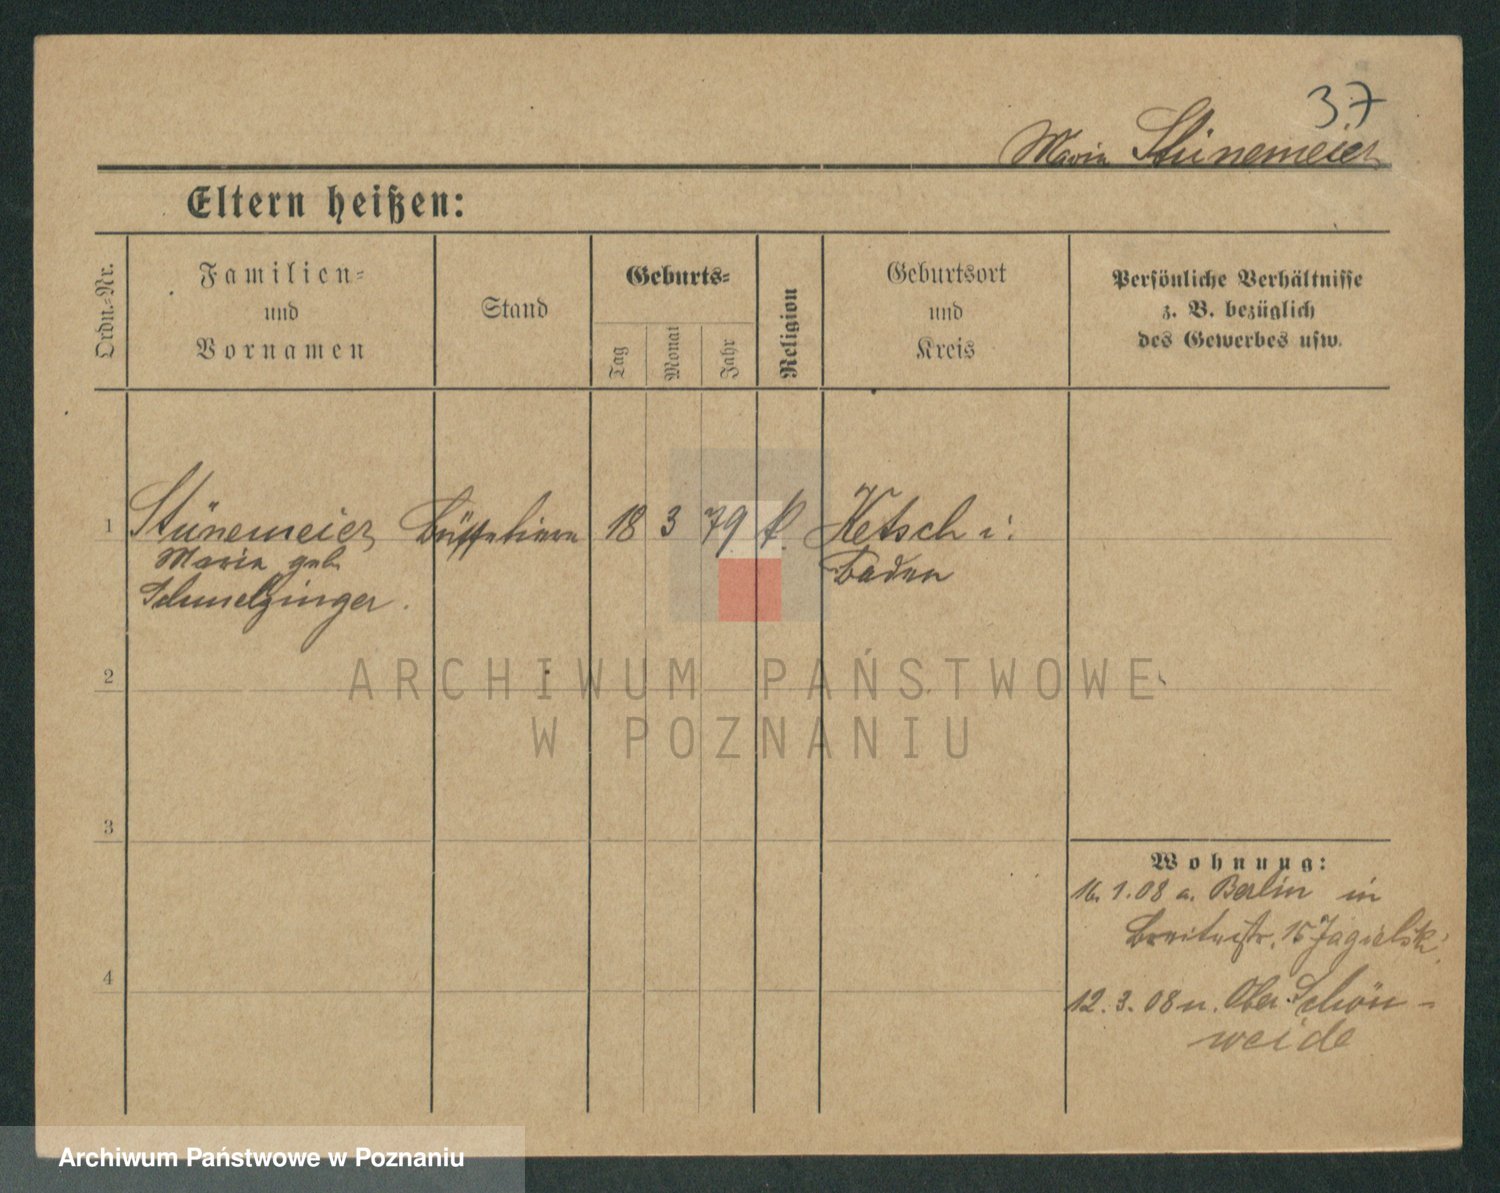 37
Maria Stünemeier
Eltern heißen:
Ordn.-Nr.
Familien-
und
Vornamen
Stand
Geburts-
Tag
Monat
Jahr
Religion
Geburtsort
und
Kreis
Persönliche Verhältnisse
z. B. bezüglich
des Gewerbes usw.
1 Stünemeier Büffetiere 18 3 79 k. Ketsch i.
Maria geb. Baden
Schmelzinger.
2
3
4
Wohnung:
16. 1. 08 a. Berlin in
Breitestr. 15 Jagielski.
12. 3. 08 n. Ober-Schön-
weide
ARCHIWUM PAŃSTWOWE
W POZNANIU
Archiwum Państwowe w Poznaniu